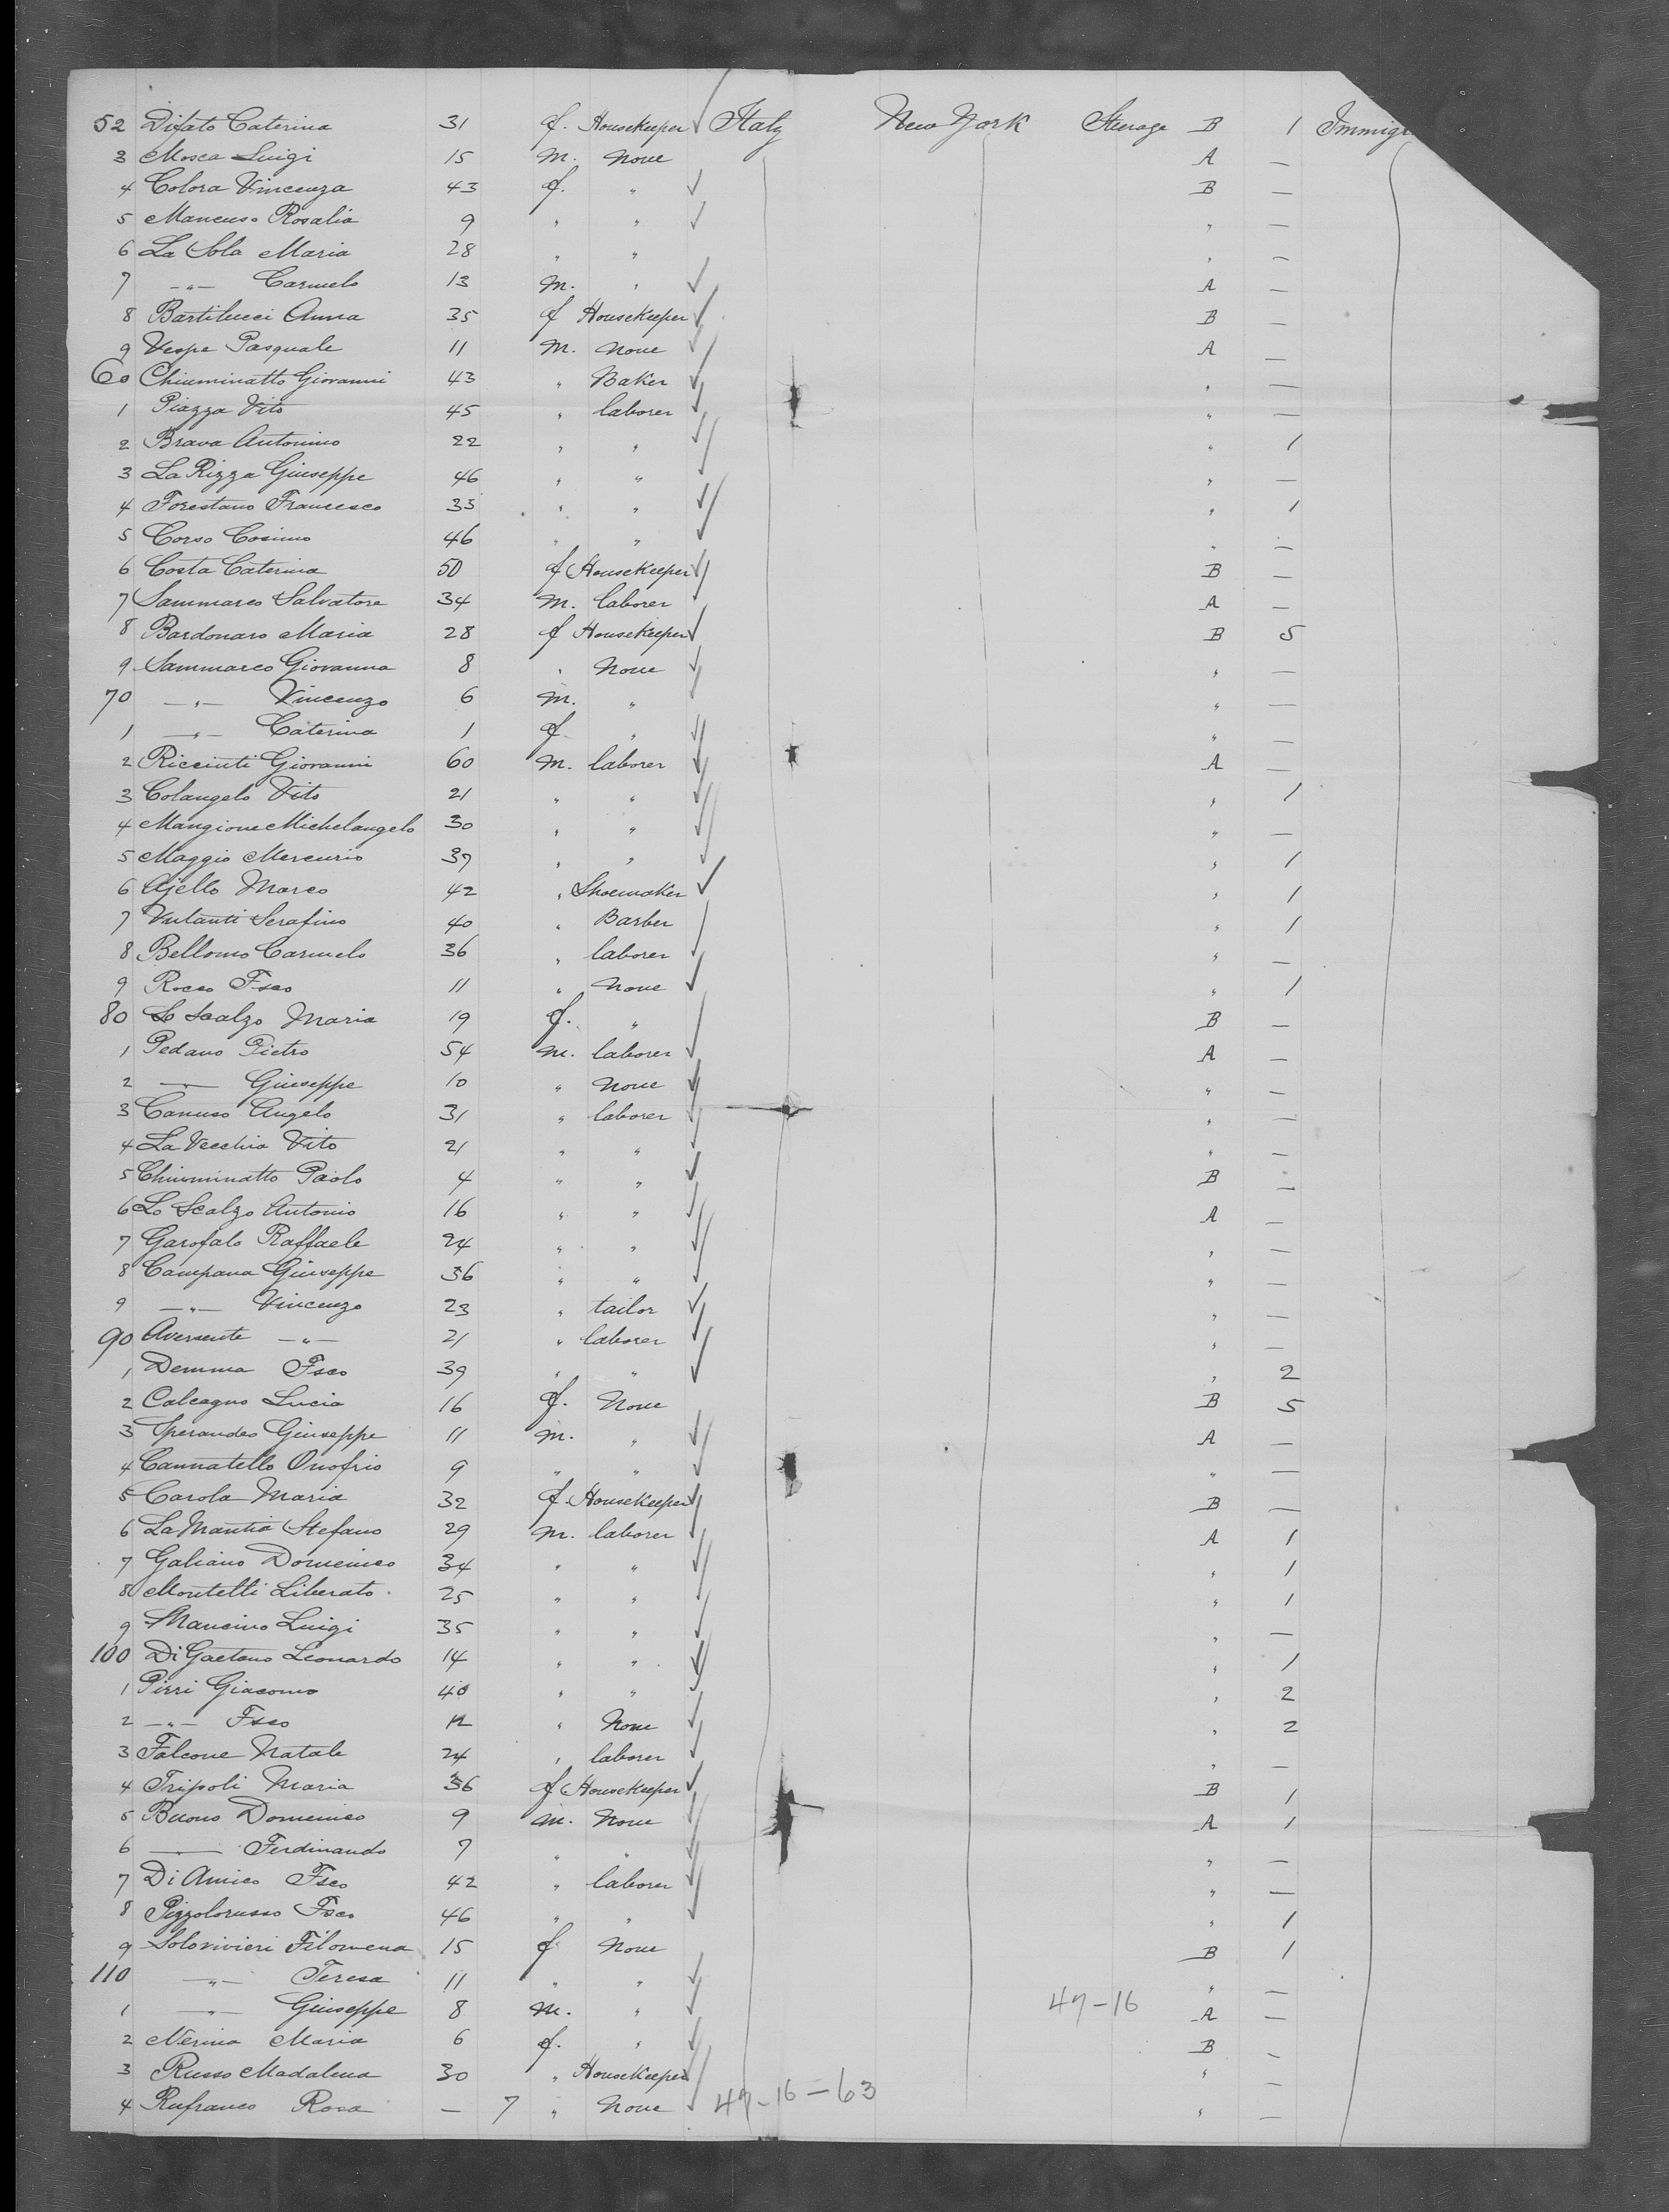 52 Difato Caterina 31 f. Housekeeper Italy New York Steerage B 1 Immigr
3 Mosca Luigi 15 m. None A —
4 Colora Vincenza 43 f. " B —
5 Mancuso Rosalia 9 " " " —
6 La Sola Maria 28 " " " —
7 —"— Carmelo 13 m. " A —
8 Bartilucci Anna 35 f Housekeeper B —
9 Vespe Pasquale 11 m. None A —
60 Chiuminatto Giovanni 43 " Baker " —
1 Piazza Vito 45 " laborer " —
2 Brava Antonino 22 " " " 1
3 La Rizza Giuseppe 46 " " " —
4 Forestano Francesco 35 " " " 1
5 Corso Cosimo 46 " " " —
6 Costa Caterina 50 f Housekeeper B —
7 Sammarco Salvatore 34 m. laborer A —
8 Bardonaro Maria 28 f Housekeeper B 5
9 Sammarco Giovanna 8 " None " —
70 —"— Vincenzo 6 m. " " —
1 —"— Caterina 1 f. " " —
2 Ricciuti Giovanni 60 m. laborer A —
3 Colangelo Vito 21 " " " 1
4 Mangione Michelangelo 30 " " " —
5 Maggio Mercurio 39 " " " 1
6 Ajello Marco 42 " Shoemaker " 1
7 Vultanti Serafino 40 " Barber " 1
8 Bellomo Carmelo 36 " laborer " —
9 Rocco Fsco 11 " None " 1
80 Lo Scalzo Maria 19 f. " B —
1 Pedano Pietro 54 m. laborer A —
2 — Giuseppe 10 " None " —
3 Canuso Angelo 31 " laborer " —
4 La Vecchia Vito 21 " " " —
5 Chiuminatto Paolo 4 " " B —
6 Lo Scalzo Antonio 16 " " A —
7 Garofalo Raffaele 24 " " " —
8 Campana Giuseppe 36 " " " —
9 —"— Vincenzo 23 " tailor " —
90 Aversente —"— 21 " laborer " —
1 Demma Fsco 39 " " " 2
2 Calcagno Lucia 16 f. None B 5
3 Sperandeo Giuseppe 11 m. " A —
4 Cannatello Onofrio 9 " " " —
5 Carola Maria 32 f. Housekeeper B —
6 La Mantia Stefano 29 m. laborer A 1
7 Galiano Domenico 34 " " " 1
8 Montelli Liberato 25 " " " 1
9 Mancino Luigi 35 " " " —
100 Di Gaetano Leonardo 14 " " " 1
1 Pirri Giacomo 40 " " " 2
2 —"— Fsco 12 " None " 2
3 Falcone Natale 24 " laborer " —
4 Tripoli Maria 36 f Housekeeper B 1
5 Buono Domenico 9 m. None A 1
6 — Ferdinando 7 " " " —
7 Di Amico Fsco 42 " laborer " —
8 Pizzolorusso Fsco 46 " " " 1
9 Solovivieri Filomena 15 f None B 1
110 —"— Teresa 11 " " " —
1 —"— Giuseppe 8 m. " 47-16 A —
2 Nerina Maria 6 f. " B —
3 Russo Madalena 30 " Housekeeper " —
4 Rufranco Rosa — 7 " None 47-16-63 " —